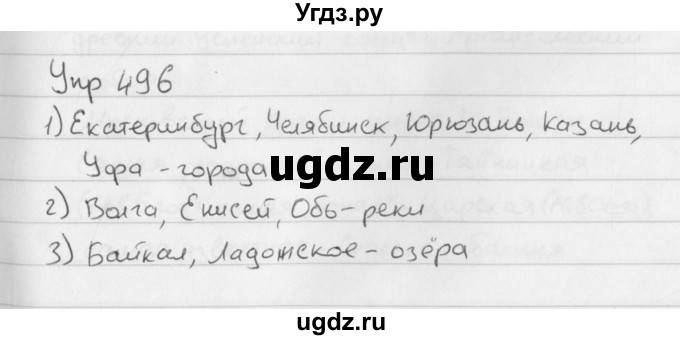 Угдз.ру
Упр 496
1) Екатеринбург, Челябинск, Юрюзань, Казань,
Уфа - города
ugdz.ru
2) Волга, Енисей, Обь - реки
3) Байкал, Ладожское - озёра
ugdz.ru